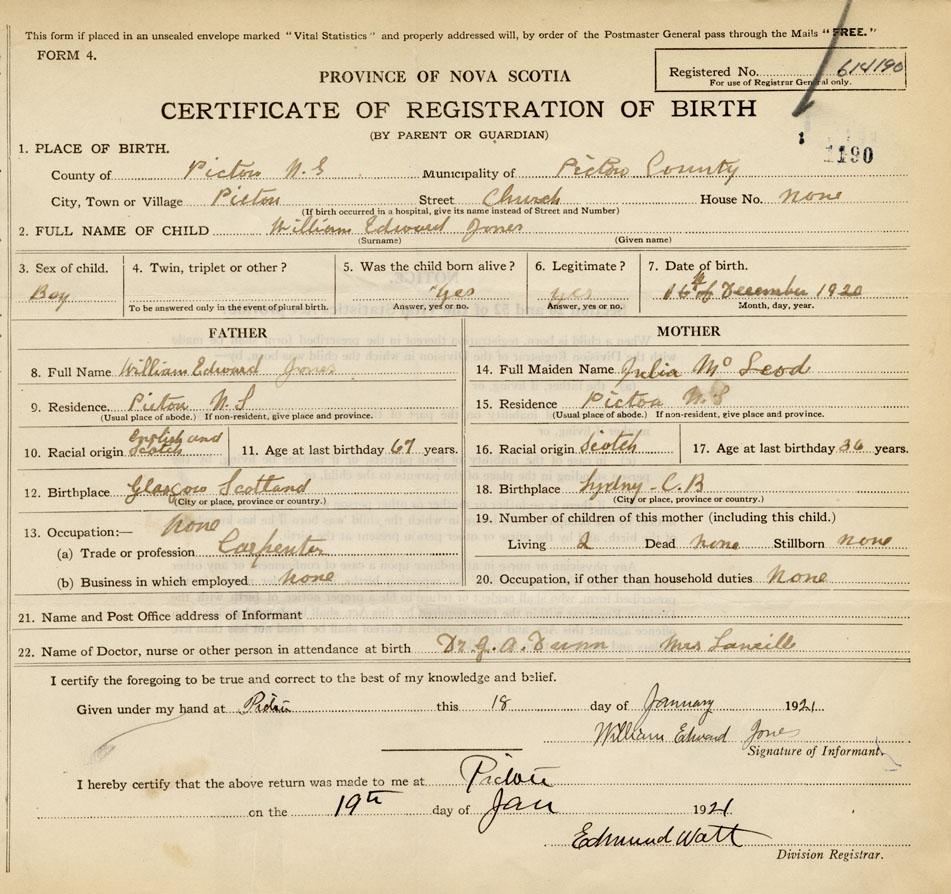 This form if placed in an unsealed envelope marked "Vital Statistics" and properly addressed will, by order of the Postmaster General pass through the Mails "FREE."
FORM 4.
Registered No. 614190
For use of Registrar General only.
PROVINCE OF NOVA SCOTIA
CERTIFICATE OF REGISTRATION OF BIRTH
(BY PARENT OR GUARDIAN)
1190
1. PLACE OF BIRTH.
County of Pictou N.S Municipality of Pictou County
City, Town or Village Pictou Street Church House No. none
(If birth occurred in a hospital, give its name instead of Street and Number)
2. FULL NAME OF CHILD William Edward Jones
(Surname) (Given name)
3. Sex of child. 4. Twin, triplet or other? 5. Was the child born alive? 6. Legitimate? 7. Date of birth.
Boy Yes yes 16th of December 1920
To be answered only in the event of plural birth. Answer, yes or no. Answer, yes or no. Month, day, year.
FATHER
8. Full Name William Edward Jones
9. Residence Pictou N.S
(Usual place of abode.) If non-resident, give place and province.
10. Racial origin English and Scotch 11. Age at last birthday 67 years.
12. Birthplace Glasgow Scotland
(City or place, province or country.)
13. Occupation:— None
(a) Trade or profession Carpenter
(b) Business in which employed none
MOTHER
14. Full Maiden Name Julia McLeod
15. Residence Pictou N.S
(Usual place of abode.) If non-resident, give place and province.
16. Racial origin Scotch 17. Age at last birthday 36 years.
18. Birthplace Sydney - C.B
(City or place, province or country.)
19. Number of children of this mother (including this child.)
Living 2 Dead none Stillborn none
20. Occupation, if other than household duties None
21. Name and Post Office address of Informant
22. Name of Doctor, nurse or other person in attendance at birth Dr. G. A. Dunn Mrs
I certify the foregoing to be true and correct to the best of my knowledge and belief.
Given under my hand at Pictou this 18 day of January 1921
William Edward Jones
Signature of Informant.
I hereby certify that the above return was made to me at Pictou
on the 19th day of Jan 1921
Edmund Watt
Division Registrar.